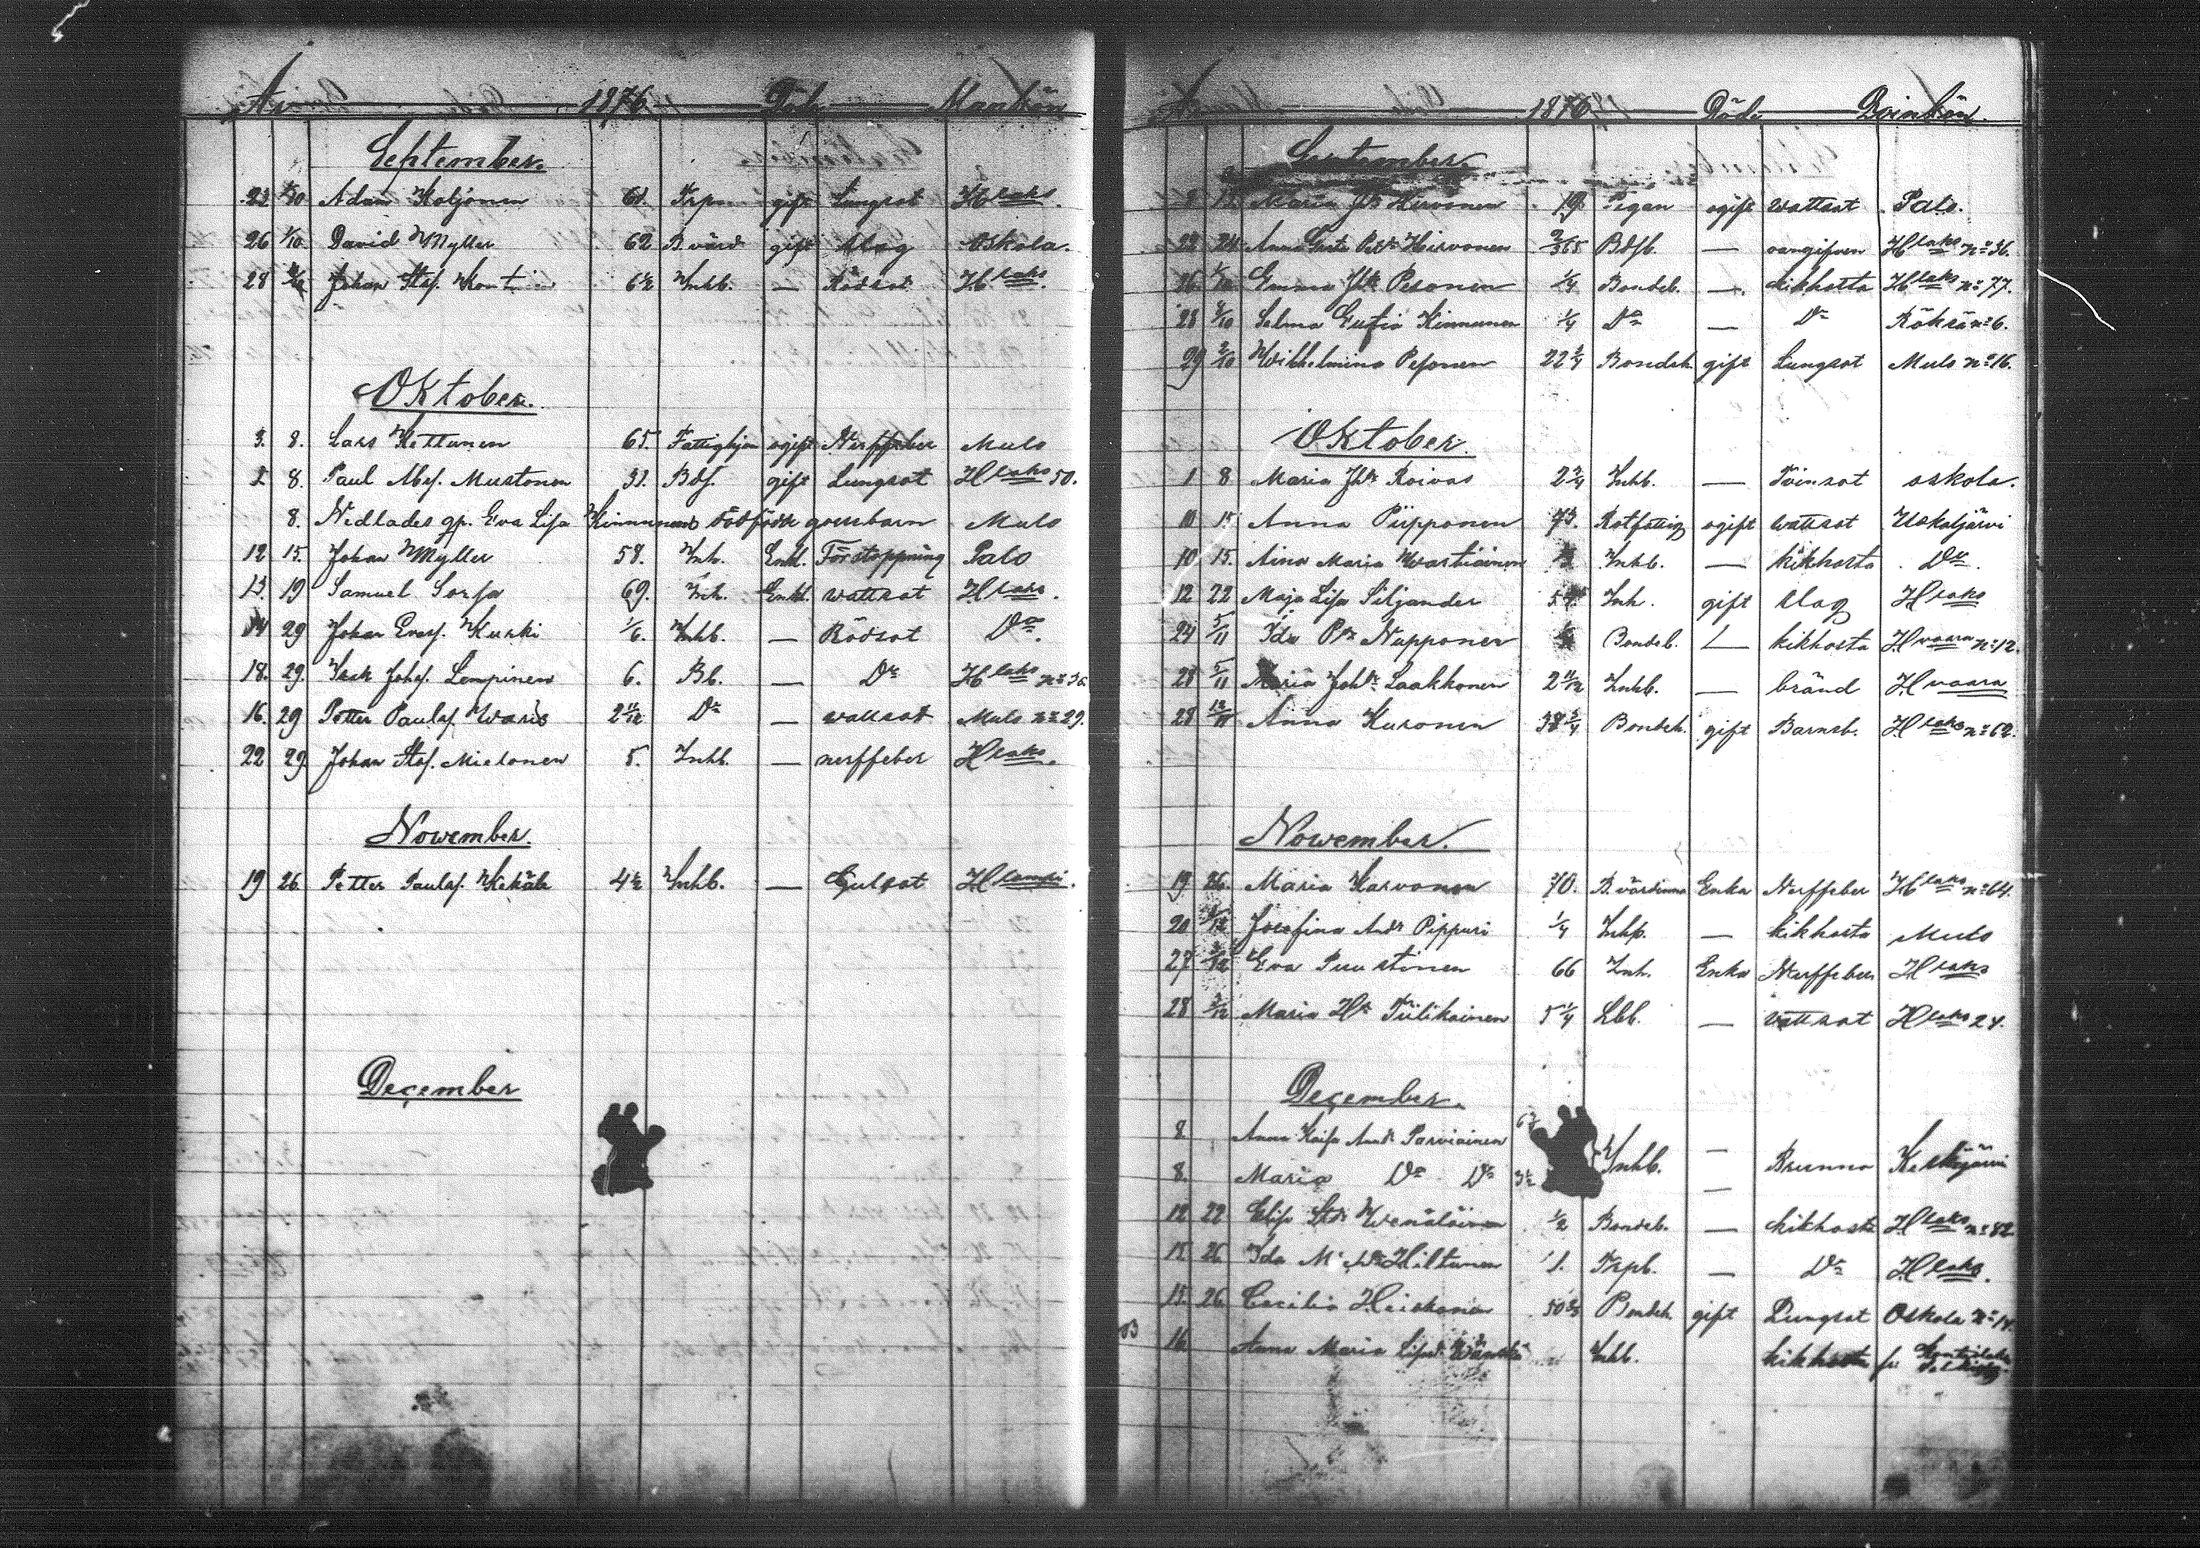 År 1876 Döde Mankön
September.
23 1/10 Adam Koljonen 61. Trpn gift Lungsot Hlaks.
26 1/10 David Myller 62 B.värd gift slag Oskola.
28 Johan Stef. Kont 6½ Inhb. — Rödsot Hlaks.
Oktober.
3. 8. Lars Kettunen 65. Fattighjon ogift Nerffeber Mulo
8. Paul Abr. Mustonen 31. Bdf. gift Lungsot Hlaks 50.
8. Nedlades gp. Eva Lisa Kinnunens dödfödde gossebarn Mulo
12 15. Johan Myller 58. Inh. Enkl. Förstoppning Palo
13. 19 Samuel Sorsa 69. Inh. Enkl. wattsot Hlaks.
14 29 Johan Kuski 1/6. Inhb. — Rödsot Do.
18. 29. Isak Johs. Lempinen 6. Bb. — Do Hlaks no 36
16. 29 Petter Paulsf. Waris 2 11/12 Do — wattsot Mulo no 29.
22 29. Johan Stef. Mietonen 5. Inhb. — nerffeber Hlaks.
November.
19 26. Petter Paulsf. Kekäle 4½ Inhb. — Gulsot Hlampi.
December
1876 Döde Qvinkön.
September
Maria Jhdr Hirvonen 19. Pigan ogift wattsot Palo.
23 24 Anna Greta Pedr Hirvonen 2/365 Bdfb. — oangifven Hlaks no 36.
26 1/10 Emma Jhdr Pesonen 1/4 Bondeb. — kikhosta Hlaks no 77.
28 1/10 Selma Eufia Kinnunen 1/4 Do — Do Röksä no 6.
29 2/10 Wilhelmina Pesonen 22 3/4 Bondeh. gift Lungsot Mulo no 16.
Oktober.
1 8 Maria Jhdr Roivas 2 3/4 Inhb. — Tvinsot oskola.
10 15 Anna Piipponen 73. Rotfattig ogift wattsot Uskaljärvi
10 15. Aina Maria Wartiainen Inhb. — kikhosta Do.
12 22 Maja Lisa Siljander 54. Inh. gift slag Hlaks
24 5/11 Ida Pdr Nupponen Bondeb. — kikhosta Hvaara no 12.
28 5/11 Maria Johdr Laakkonen 2 11/12 Inhb. — bränd Hvaara
28 12/11 Anna Kuronen 38 3/4 Bondeh. gift Barnsb. Hlaks no 62.
November.
19. 26. Maria Karvonen 70. B.värdinna Enka Nerffeber Hlaks no 64.
20 Josefina Andr Pippuri 1/4 Inhb. — kikhosta Mulo
27 3/12 Eva Puustinen 66 Inh. Enka Nerffeber Hlaks
28 3/12 Maria Hdr Tiilikainen 5 1/4 Lbb. — vattsot Hlaks 24.
December.
8. Anna Kaisa Andr Parviainen 6½ —
8. Maria Do Do 3½ Inhb. — Brunno Keskijärvi
12 22 Elisa Stdr Wenäläinen 1/2 Bondeb. — kikhosta Hlaks no 82
15 26 Ida M. Hiltunen 1. Trpb. — Do Hlaks.
15. 26 Cecilia Heiskanen 50 Bondeh. gift Lungsot Oskola no 14.
16. Anna Maria Inhb. kikhosta